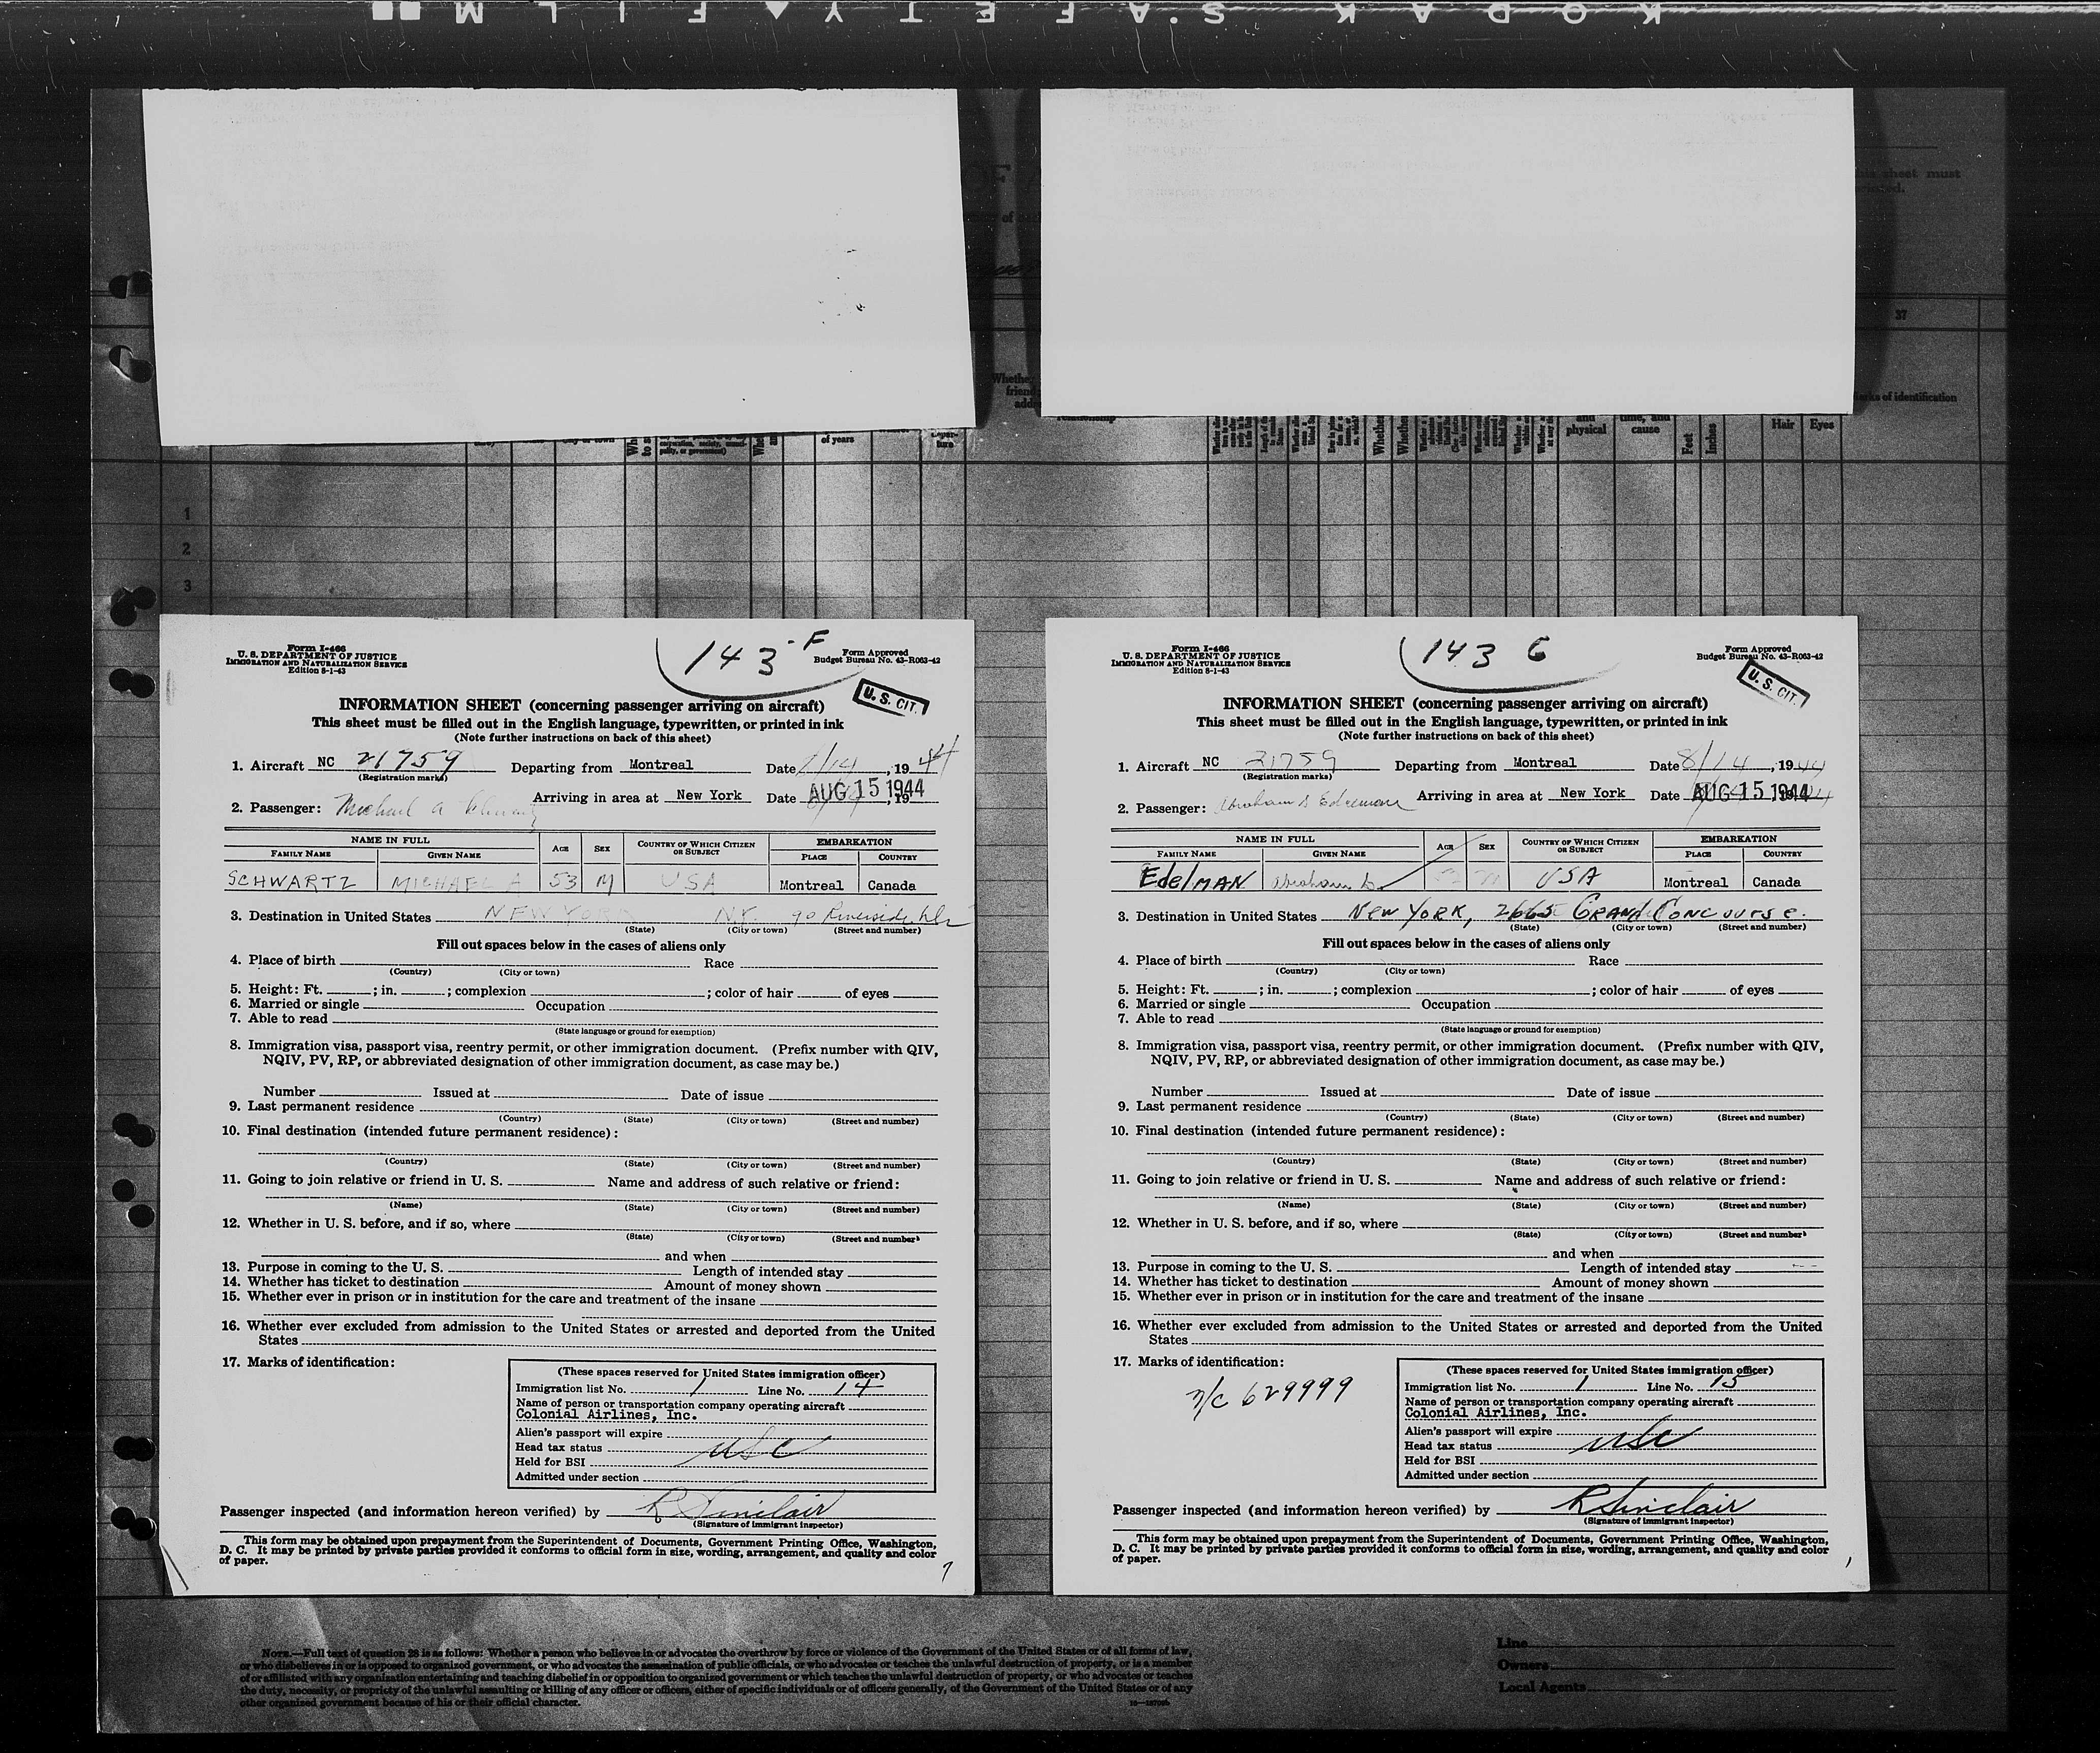 KODAK SAFETY FILM
this sheet must
37
Whether
friend
relationship
marks of identification
of years
physical
time, and
cause
Feet
Inches
Hair
Eyes
1
2
3
Form I-466
U. S. DEPARTMENT OF JUSTICE
IMMIGRATION AND NATURALIZATION SERVICE
Edition 8-1-43
143-F
Form Approved
Budget Bureau No. 43-R063-42
U. S. CIT.
INFORMATION SHEET (concerning passenger arriving on aircraft)
This sheet must be filled out in the English language, typewritten, or printed in ink
(Note further instructions on back of this sheet)
1. Aircraft NC 21759 Departing from Montreal Date /14, 1944
(Registration marks)
Arriving in area at New York Date AUG 15 1944, 19
2. Passenger: Michael A
NAME IN FULL AGE SEX COUNTRY OF WHICH CITIZEN OR SUBJECT EMBARKATION
FAMILY NAME GIVEN NAME PLACE COUNTRY
SCHWARTZ MICHAEL A 53 M USA Montreal Canada
3. Destination in United States NEW YORK N.Y. 90 Riverside Dr
(State) (City or town) (Street and number)
Fill out spaces below in the cases of aliens only
4. Place of birth Race
(Country) (City or town)
5. Height: Ft. ; in. ; complexion ; color of hair of eyes
6. Married or single Occupation
7. Able to read
(State language or ground for exemption)
8. Immigration visa, passport visa, reentry permit, or other immigration document. (Prefix number with QIV,
NQIV, PV, RP, or abbreviated designation of other immigration document, as case may be.)
Number Issued at Date of issue
9. Last permanent residence
(Country) (State) (City or town) (Street and number)
10. Final destination (intended future permanent residence):
(Country) (State) (City or town) (Street and number)
11. Going to join relative or friend in U. S. Name and address of such relative or friend:
(Name) (State) (City or town) (Street and number)
12. Whether in U. S. before, and if so, where
(State) (City or town) (Street and number)
and when
13. Purpose in coming to the U. S. Length of intended stay
14. Whether has ticket to destination Amount of money shown
15. Whether ever in prison or in institution for the care and treatment of the insane
16. Whether ever excluded from admission to the United States or arrested and deported from the United
States
17. Marks of identification:
(These spaces reserved for United States immigration officer)
Immigration list No. 1 Line No. 14
Name of person or transportation company operating aircraft
Colonial Airlines, Inc.
Alien's passport will expire
Head tax status USC
Held for BSI
Admitted under section
Passenger inspected (and information hereon verified) by R Sinclair
(Signature of immigrant inspector)
This form may be obtained upon prepayment from the Superintendent of Documents, Government Printing Office, Washington,
D. C. It may be printed by private parties provided it conforms to official form in size, wording, arrangement, and quality and color
of paper.
Form I-466
U. S. DEPARTMENT OF JUSTICE
IMMIGRATION AND NATURALIZATION SERVICE
Edition 8-1-43
143 G
Form Approved
Budget Bureau No. 43-R063-42
U. S. CIT.
INFORMATION SHEET (concerning passenger arriving on aircraft)
This sheet must be filled out in the English language, typewritten, or printed in ink
(Note further instructions on back of this sheet)
1. Aircraft NC 21759 Departing from Montreal Date 8/14, 1944
(Registration marks)
Arriving in area at New York Date AUG 15 1944
2. Passenger: Abraham S Edelman
NAME IN FULL AGE SEX COUNTRY OF WHICH CITIZEN OR SUBJECT EMBARKATION
FAMILY NAME GIVEN NAME PLACE COUNTRY
EdelMAN Abraham USA Montreal Canada
3. Destination in United States New YORK, 2665 GRAND CONCOURSE.
(State) (City or town) (Street and number)
Fill out spaces below in the cases of aliens only
4. Place of birth Race
(Country) (City or town)
5. Height: Ft. ; in. ; complexion ; color of hair of eyes
6. Married or single Occupation
7. Able to read
(State language or ground for exemption)
8. Immigration visa, passport visa, reentry permit, or other immigration document. (Prefix number with QIV,
NQIV, PV, RP, or abbreviated designation of other immigration document, as case may be.)
Number Issued at Date of issue
9. Last permanent residence
(Country) (State) (City or town) (Street and number)
10. Final destination (intended future permanent residence):
(Country) (State) (City or town) (Street and number)
11. Going to join relative or friend in U. S. Name and address of such relative or friend:
(Name) (State) (City or town) (Street and number)
12. Whether in U. S. before, and if so, where
(State) (City or town) (Street and number)
and when
13. Purpose in coming to the U. S. Length of intended stay
14. Whether has ticket to destination Amount of money shown
15. Whether ever in prison or in institution for the care and treatment of the insane
16. Whether ever excluded from admission to the United States or arrested and deported from the United
States
17. Marks of identification:
n/c 629999
(These spaces reserved for United States immigration officer)
Immigration list No. 1 Line No. 15
Name of person or transportation company operating aircraft
Colonial Airlines, Inc.
Alien's passport will expire
Head tax status USC
Held for BSI
Admitted under section
Passenger inspected (and information hereon verified) by R Sinclair
(Signature of immigrant inspector)
This form may be obtained upon prepayment from the Superintendent of Documents, Government Printing Office, Washington,
D. C. It may be printed by private parties provided it conforms to official form in size, wording, arrangement, and quality and color
of paper.
NOTE.—Full text of question 28 is as follows: Whether a person who believes in or advocates the overthrow by force or violence of the Government of the United States or of all forms of law,
or who disbelieves in or is opposed to organized government, or who advocates the assassination of public officials, or who advocates or teaches the unlawful destruction of property, or is a member
of or affiliated with any organization entertaining and teaching disbelief in or opposition to organized government or which teaches the unlawful destruction of property, or who advocates or teaches
the duty, necessity, or propriety of the unlawful assaulting or killing of any officer or officers, either of specific individuals or of officers generally, of the Government of the United States or of any
other organized government because of his or their official character.
Line
Owners
Local Agents